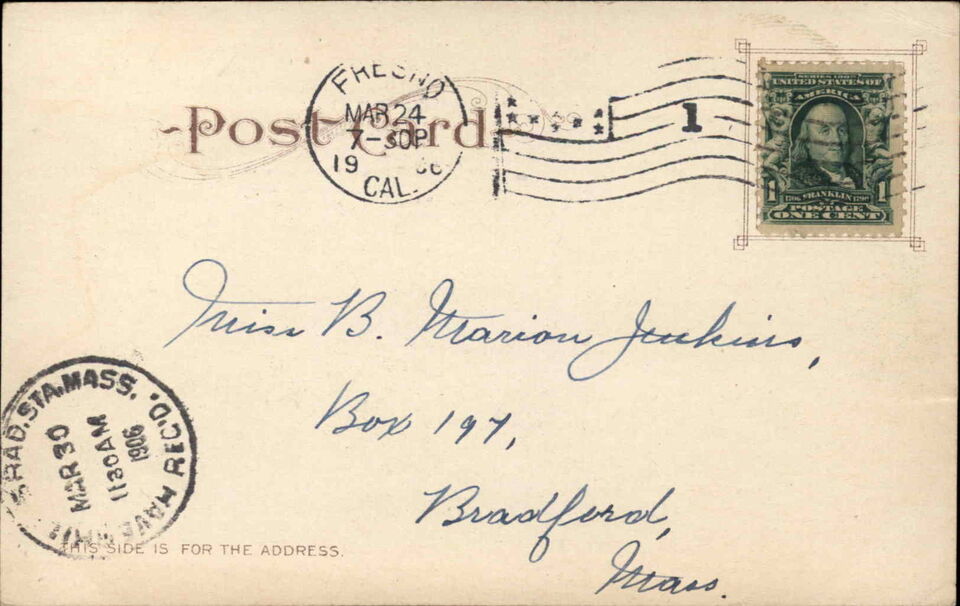 Post Card
FRESNO
MAR 24
7-30P
19 06
CAL.
1
SERIES 1902
UNITED STATES OF
AMERICA
1 1706 FRANKLIN 1790 1
POSTAGE
ONE CENT
Miss B. Marion Jenkins,
Box 197,
Bradford,
Mass.
BRAD. STA. MASS. REC'D.
MAR 30
1130AM
1906
HAVERHILL
THIS SIDE IS FOR THE ADDRESS.